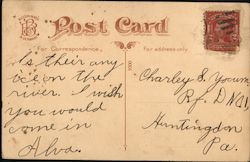 Post Card
For Correspondence.
For address only.
Is their any
ice on the
river. I wish
you would
come in
Alva.
Charley E. Young
R.F.D No 1
Huntingdon
Pa.